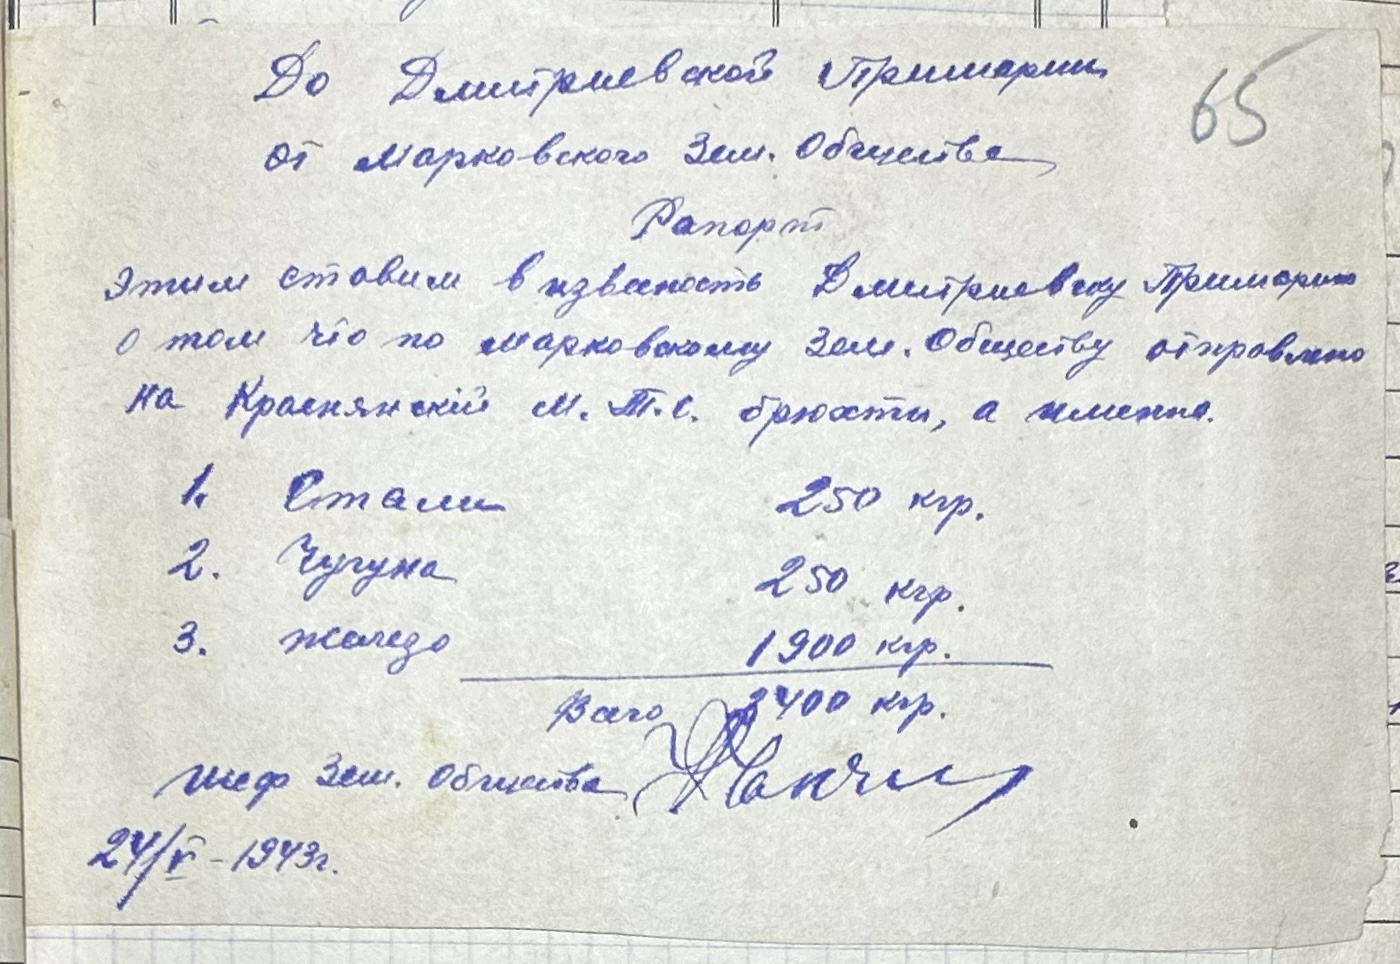 До Дмитриевской Примарии
65
от Марковского Зем. Общества
Рапорт
Этим ставим в извесность Дмитриевску Примарию
о том что по Марковскому Зем. Обществу отправлено
на Краснянскій М.Т.С. брюхты, а именно.
1. Стали 250 кгр.
2. Чугуна 250 кгр.
3. железо 1900 кгр.
Всего 2400 кгр.
шеф Зем. Общества
24/V - 1943г.